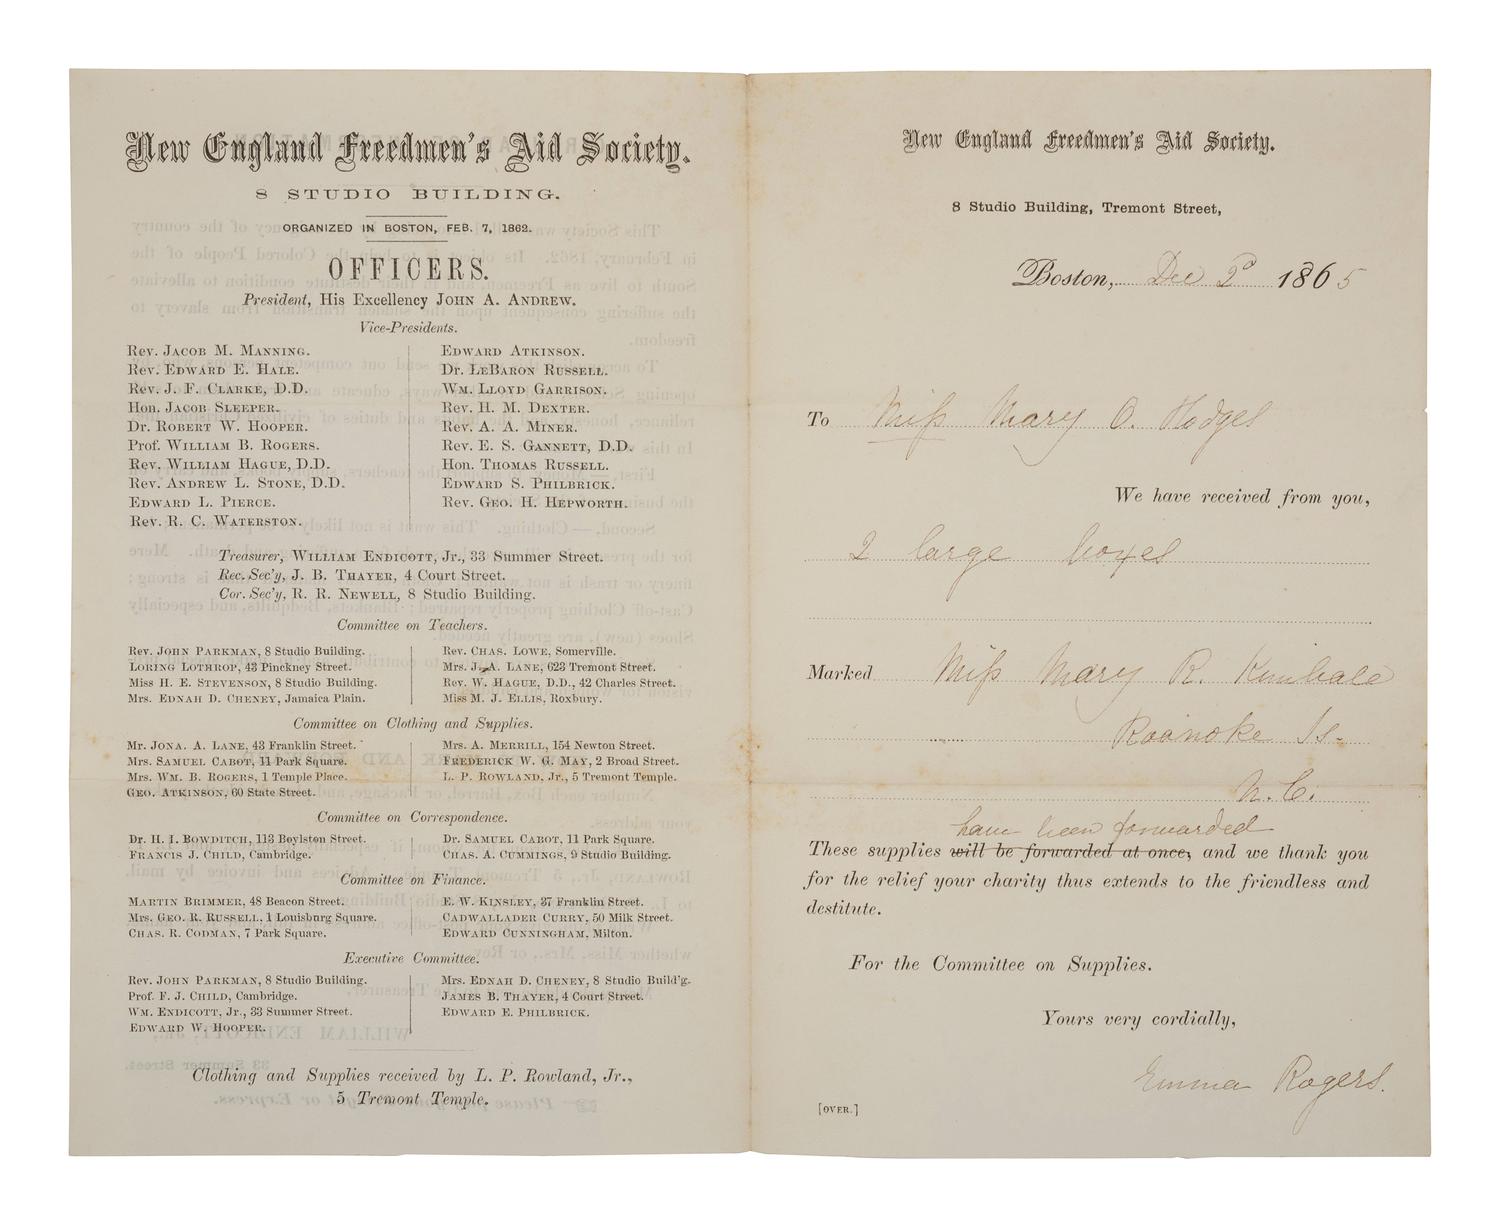 New England Freedmen's Aid Society.
8 STUDIO BUILDING.
ORGANIZED IN BOSTON, FEB. 7, 1862.
OFFICERS.
President, His Excellency JOHN A. ANDREW.
Vice-Presidents.
Rev. JACOB M. MANNING.
Rev. EDWARD E. HALE.
Rev. J. F. CLARKE, D.D.
Hon. JACOB SLEEPER.
Dr. ROBERT W. HOOPER.
Prof. WILLIAM B. ROGERS.
Rev. WILLIAM HAGUE, D.D.
Rev. ANDREW L. STONE, D.D.
EDWARD L. PIERCE.
Rev. R. C. WATERSTON.
EDWARD ATKINSON.
Dr. LEBARON RUSSELL.
WM. LLOYD GARRISON.
Rev. H. M. DEXTER.
Rev. A. A. MINER.
Rev. E. S. GANNETT, D.D.
Hon. THOMAS RUSSELL.
EDWARD S. PHILBRICK.
Rev. GEO. H. HEPWORTH.
Treasurer, WILLIAM ENDICOTT, Jr., 33 Summer Street.
Rec. Sec'y, J. B. THAYER, 4 Court Street.
Cor. Sec'y, R. R. NEWELL, 8 Studio Building.
Committee on Teachers.
Rev. JOHN PARKMAN, 8 Studio Building.
LORING LOTHROP, 43 Pinckney Street.
Miss H. E. STEVENSON, 8 Studio Building.
Mrs. EDNAH D. CHENEY, Jamaica Plain.
Rev. CHAS. LOWE, Somerville.
Mrs. J. A. LANE, 623 Tremont Street.
Rev. W. HAGUE, D.D., 42 Charles Street.
Miss M. J. ELLIS, Roxbury.
Committee on Clothing and Supplies.
Mr. JONA. A. LANE, 43 Franklin Street.
Mrs. SAMUEL CABOT, 11 Park Square.
Mrs. WM. B. ROGERS, 1 Temple Place.
GEO. ATKINSON, 60 State Street.
Mrs. A. MERRILL, 154 Newton Street.
FREDERICK W. G. MAY, 2 Broad Street.
L. P. ROWLAND, Jr., 5 Tremont Temple.
Committee on Correspondence.
Dr. H. I. BOWDITCH, 113 Boylston Street.
FRANCIS J. CHILD, Cambridge.
Dr. SAMUEL CABOT, 11 Park Square.
CHAS. A. CUMMINGS, 9 Studio Building.
Committee on Finance.
MARTIN BRIMMER, 48 Beacon Street.
Mrs. GEO. R. RUSSELL, 1 Louisburg Square.
CHAS. R. CODMAN, 7 Park Square.
E. W. KINSLEY, 37 Franklin Street.
CADWALLADER CURRY, 50 Milk Street.
EDWARD CUNNINGHAM, Milton.
Executive Committee.
Rev. JOHN PARKMAN, 8 Studio Building.
Prof. F. J. CHILD, Cambridge.
WM. ENDICOTT, Jr., 33 Summer Street.
EDWARD W. HOOPER.
Mrs. EDNAH D. CHENEY, 8 Studio Build'g.
JAMES B. THAYER, 4 Court Street.
EDWARD E. PHILBRICK.
Clothing and Supplies received by L. P. Rowland, Jr.,
5 Tremont Temple.
New England Freedmen's Aid Society.
8 Studio Building, Tremont Street,
Boston, Dec 2d 1865
To Miss Mary O. Hodges
We have received from you,
2 large boxes
Marked Miss Mary R. Kimbale
Roanoke Is.
N.C.
have been forwarded
These supplies will be forwarded at once, and we thank you
for the relief your charity thus extends to the friendless and
destitute.
For the Committee on Supplies.
Yours very cordially,
Emma Rogers.
[OVER.]